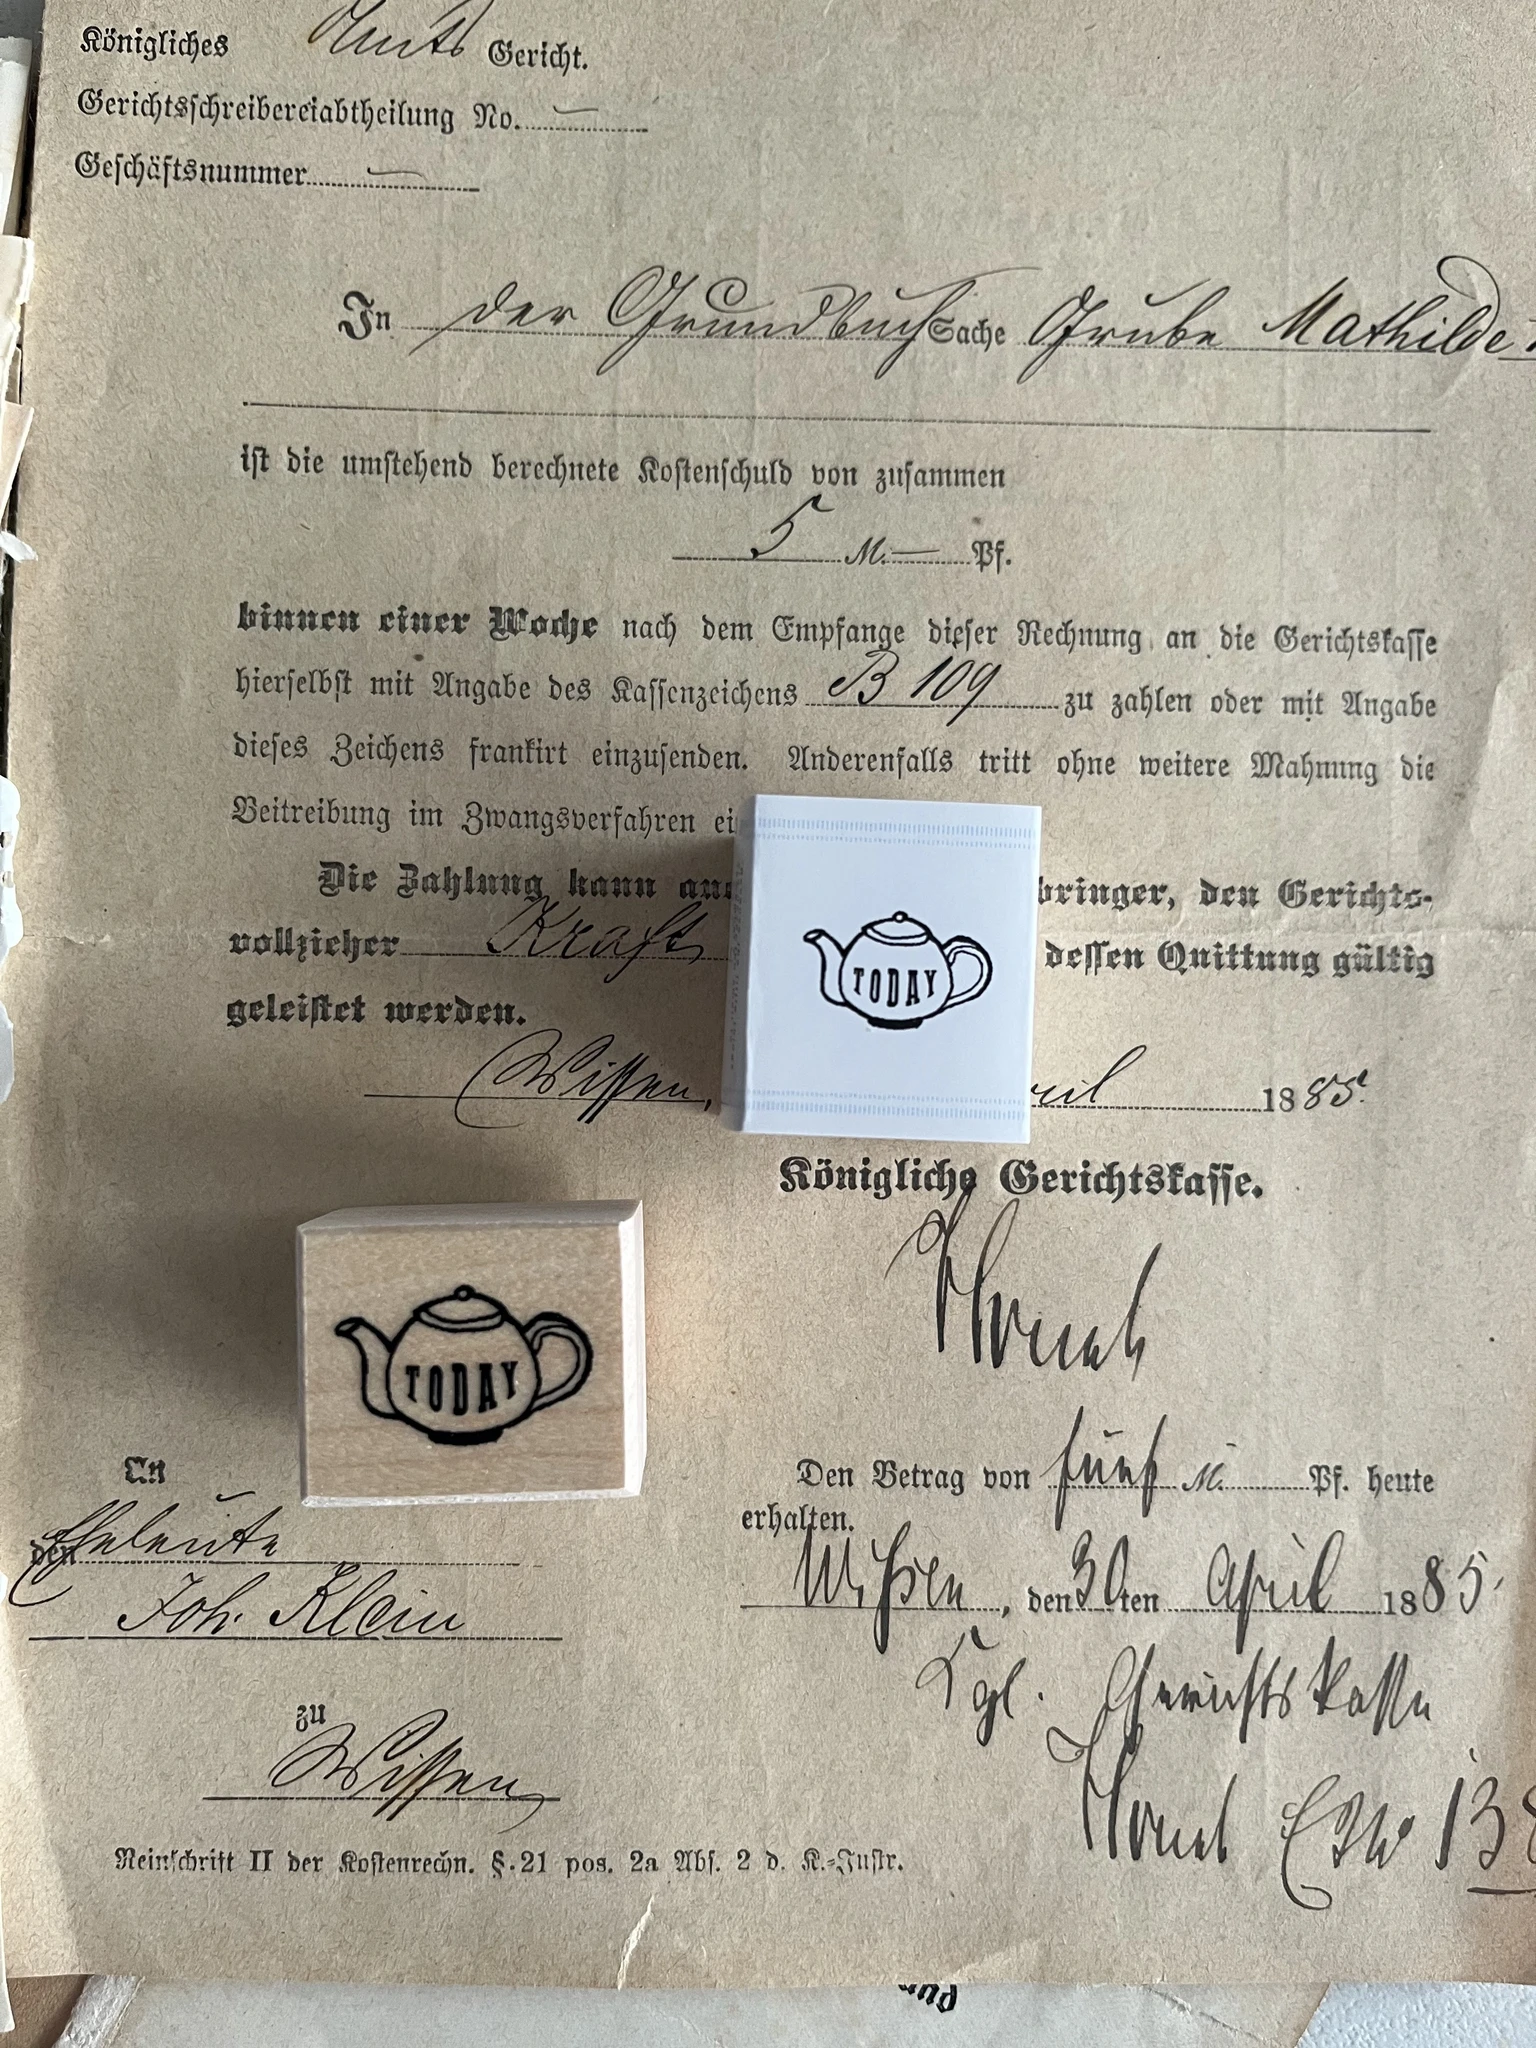 Königliches Amts Gericht.
Gerichtsschreibereiabtheilung No. —
Geschäftsnummer —
In der Grundbuch Sache Grube Mathilde
ist die umstehend berechnete Kostenschuld von zusammen
5 M. — Pf.
binnen einer Woche nach dem Empfange dieser Rechnung an die Gerichtskasse
hierselbst mit Angabe des Kassenzeichens B 109 zu zahlen oder mit Angabe
dieses Zeichens frankirt einzusenden. Anderenfalls tritt ohne weitere Mahnung die
Beitreibung im Zwangsverfahren ei
Die Zahlung kann an bringer, den Gerichts-
vollzieher Kraft dessen Quittung gültig
geleistet werden.
TODAY
Wissen, ril 1885.
Königliche Gerichtskasse.
TODAY
An
den Eheleute
Joh. Klein
zu
Wissen
Den Betrag von fünf M. Pf. heute
erhalten.
Wissen, den 30ten April 1885.
Kgl. Gerichtskasse
Reinschrift II der Kostenrechn. §. 21 pos. 2a Abs. 2 d. K.-Instr.